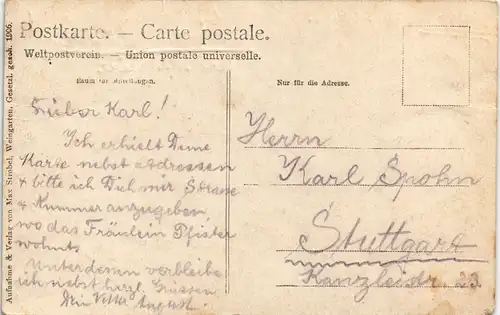 Postkarte. — Carte postale.
Weltpostverein. — Union postale universelle.
Raum für Mitteilungen.
Nur für die Adresse.
Aufnahme & Verlag von Max Strobel, Weingarten. Gesetzl. gesch. 1906.
Lieber Karl!
Ich erhielt Deine
Karte nebst Adressen
& bitte ich Dich mir Strasse
& Nummer anzugeben,
wo das Fräulein Pfister
wohnt.
Unterdessen verbleibe
ich nebst herzl. Grüssen
Dein Vetter August.
Herrn
Karl Spohn
Stuttgart
Kanzleistr. 23.